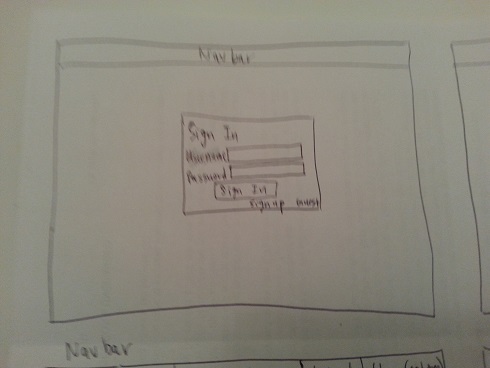 Navbar
Sign In
Username
Password
Sign In
Sign up Guest
Navbar